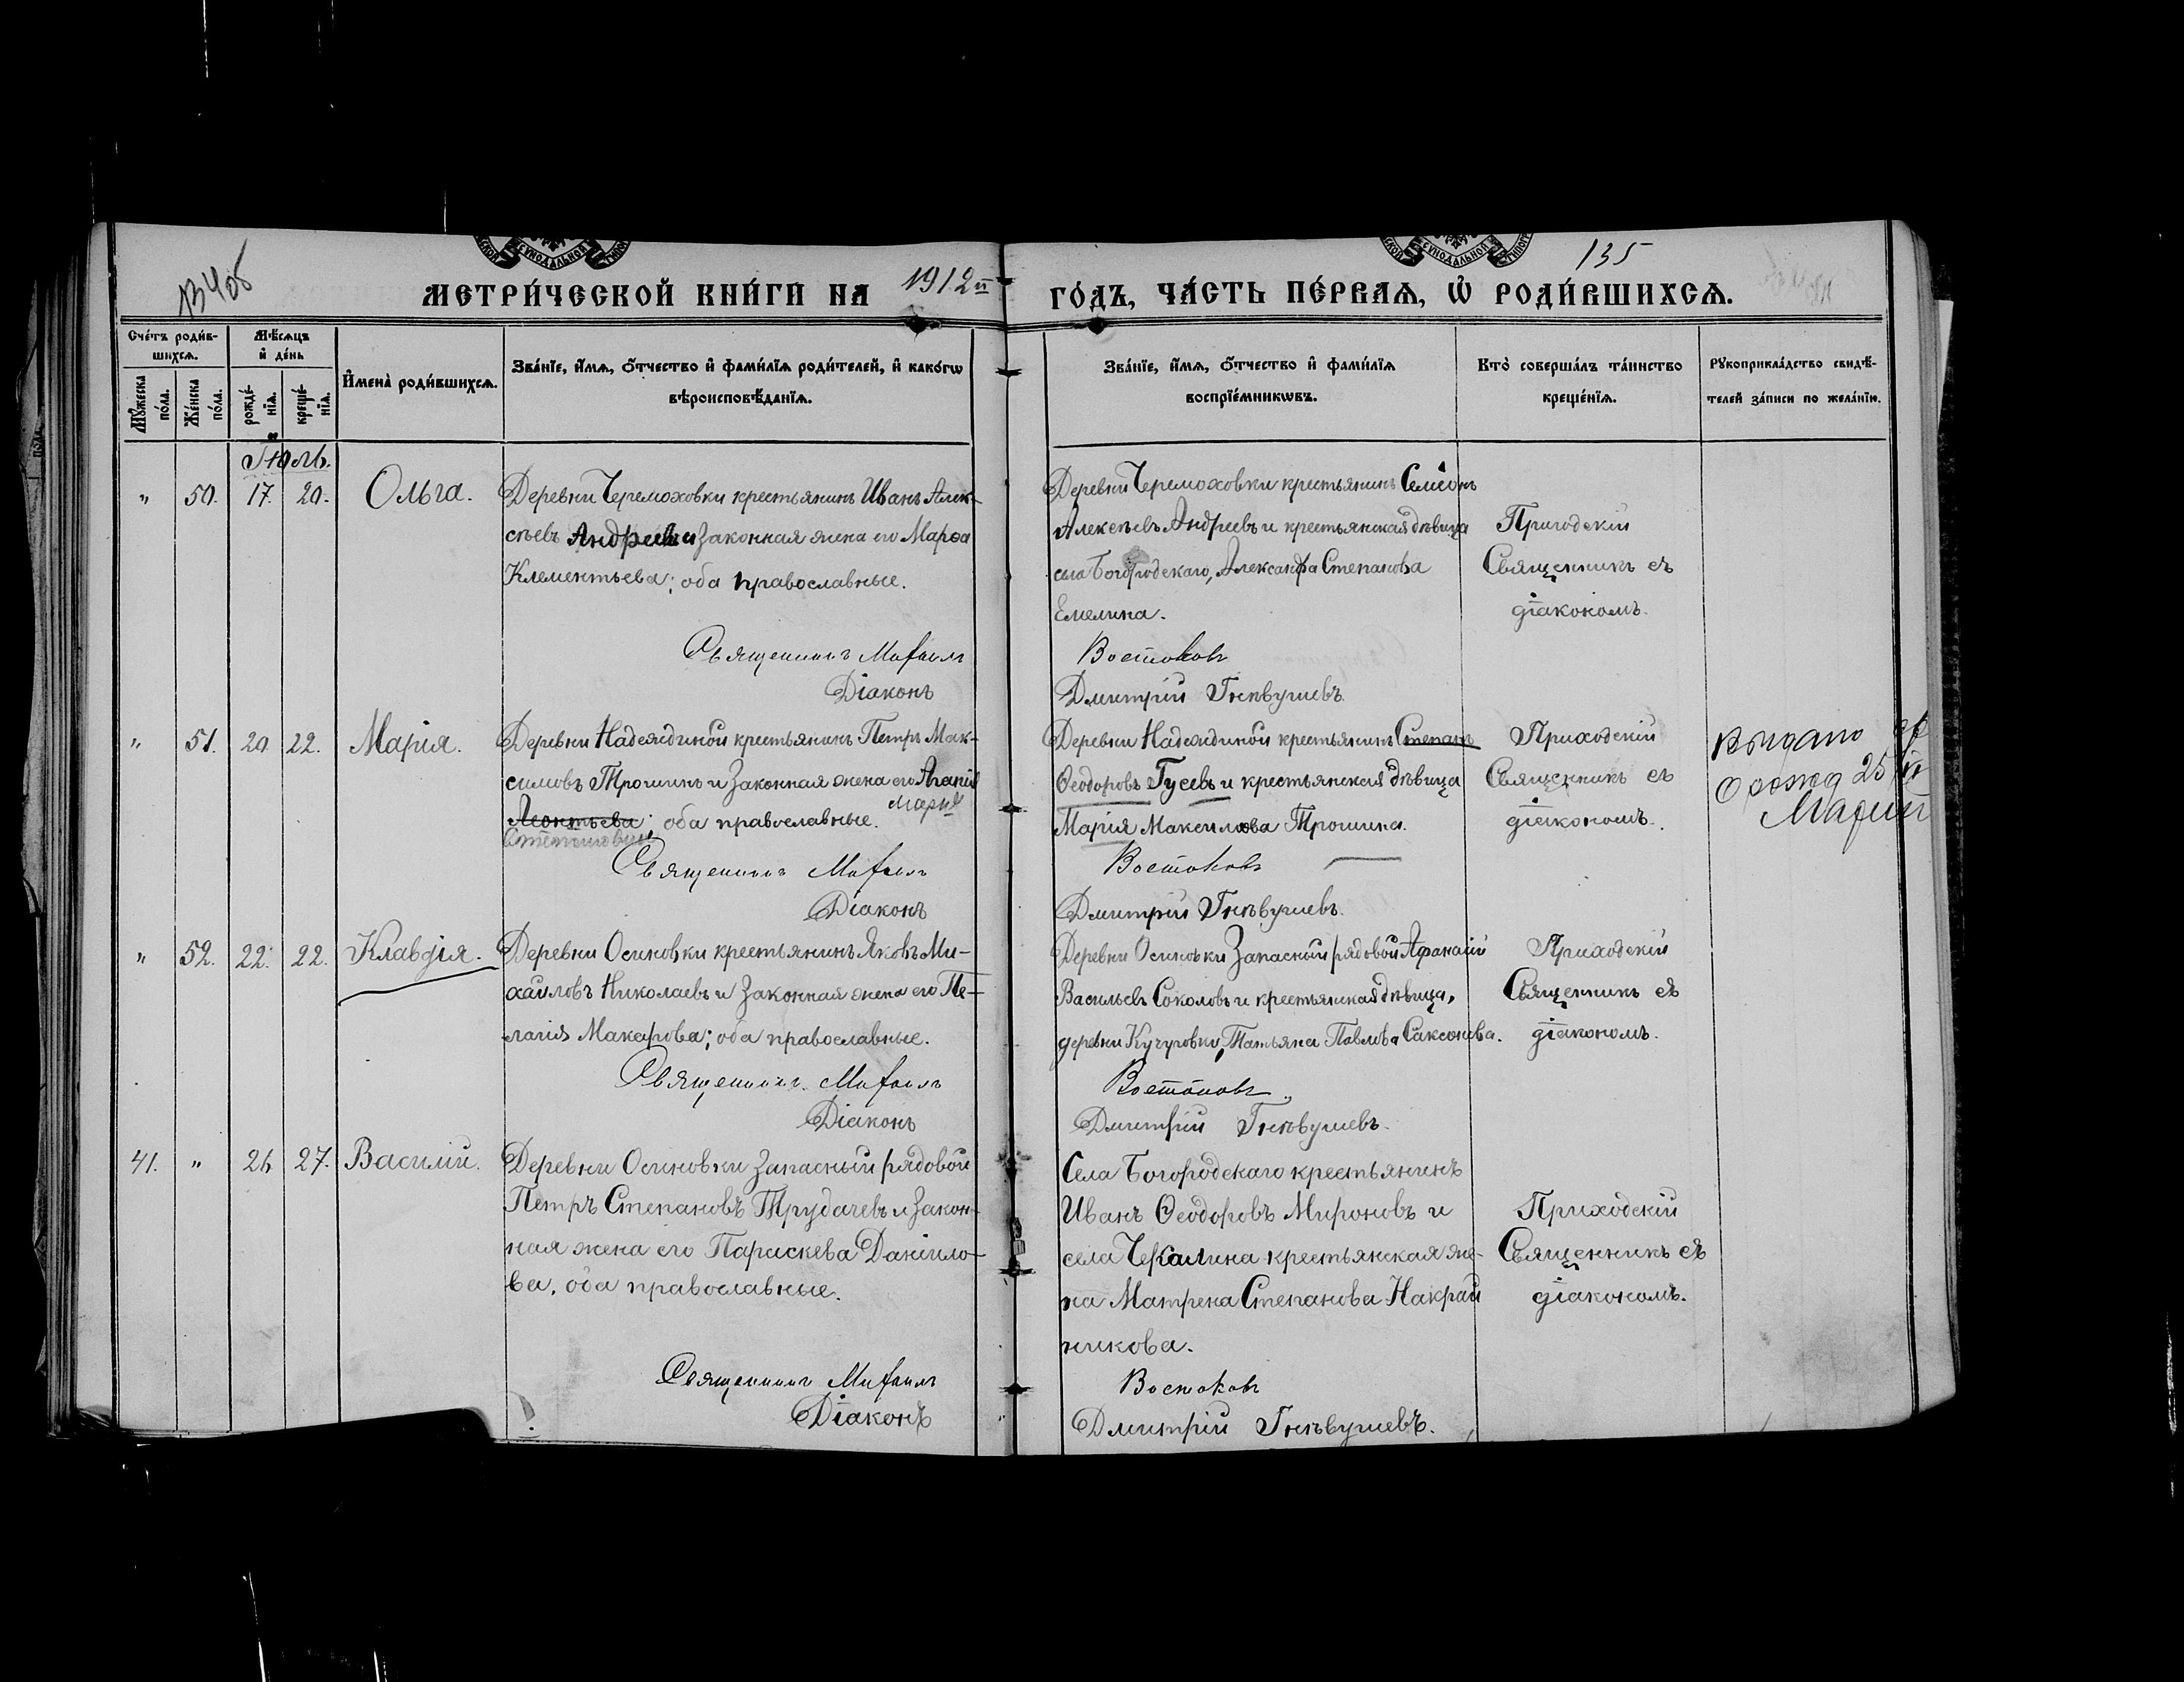 134об
135
МЕТРИ́ЧЕСКОЙ КНИ́ГИ НА 1912й ГО́ДЪ, ЧА́СТЬ ПЕ́РВАѦ, Ѡ҆ РОДИ́ВШИХСѦ.
Сче́тъ роди́в-
шихсѧ.
Мѣ́сѧцъ
и҆ де́нь
И҆мена̀ роди́вшихсѧ.
Зва́нїе, и҆́мѧ, ѻ҆́тчество и҆ фами́лїѧ роди́телей, и҆ како́гѡ
вѣроисповѣ́данїѧ.
Зва́нїе, и҆́мѧ, ѻ҆́тчество и҆ фами́лїѧ
воспрїе́мникѡвъ.
Кто̀ соверша́лъ та́инство
креще́нїѧ.
Рꙋкоприкла́дство свидѣ́-
телей за́писи по жела́нїю.
Мꙋ́жеска
по́ла.
Же́нска
по́ла.
рожде́-
нїѧ.
креще́-
нїѧ.
Іюль.
„ 50. 17. 20. Ольга.
Деревни Черемоховки крестьянинъ Иванъ Алек-
сѣевъ Андреевъ и законная жена его Марѳа
Клементьева; оба православные.
Священникъ Михаилъ
Діаконъ
Деревни Черемоховки крестьянинъ Семеонъ
Алексѣевъ Андреевъ и крестьянская дѣвица
села Богородскаго, Александра Степанова
Емелина.
Востоковъ
Дмитрій Гнѣвушевъ.
Приходскій
Священникъ съ
діакономъ.
„ 51. 20 22. Марія.
Деревни Надеждиной крестьянинъ Петръ Мак-
симовъ Трошинъ и законная жена его Агапія
Марія
Леонтьева; оба православные.
Степановна
Священникъ Михаилъ
Діаконъ
Деревни Надеждиной крестьянинъ Степанъ
Ѳеодоровъ Гусевъ и крестьянская дѣвица
Марія Максимова Трошина.
Востоковъ
Дмитрій Гнѣвушевъ.
Приходскій
Священникъ съ
діакономъ.
Выдано
о рожд 25
Марии
„ 52. 22. 22. Клавдія.
Деревни Осиновки крестьянинъ Яковъ Ми-
хайловъ Николаевъ и законная жена его Пе-
лагія Макарова; оба православные.
Священникъ Михаилъ
Діаконъ
Деревни Осиновки запасный рядовой Афанасій
Васильевъ Соколовъ и крестьянская дѣвица,
деревни Кучуровки, Татьяна Павлова Саксонова.
Востоковъ
Дмитрій Гнѣвушевъ.
Приходскій
Священникъ съ
діакономъ.
41. „ 26 27. Василій.
Деревни Осиновки запасный рядовой
Петръ Степановъ Трудачевъ и закон-
ная жена его Параскева Даніило-
ва, оба православные.
Священникъ Михаилъ
Діаконъ
Села Богородскаго крестьянинъ
Иванъ Ѳеодоровъ Мироновъ и
села Чекалина крестьянская же-
на Матрена Степанова Накрай
никова.
Востоковъ
Дмитрій Гнѣвушевъ.
Приходскій
Священникъ съ
діакономъ.